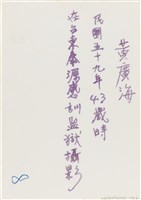 黃廣海
民國五十九年43歲時
在台東泰源感訓監獄攝影